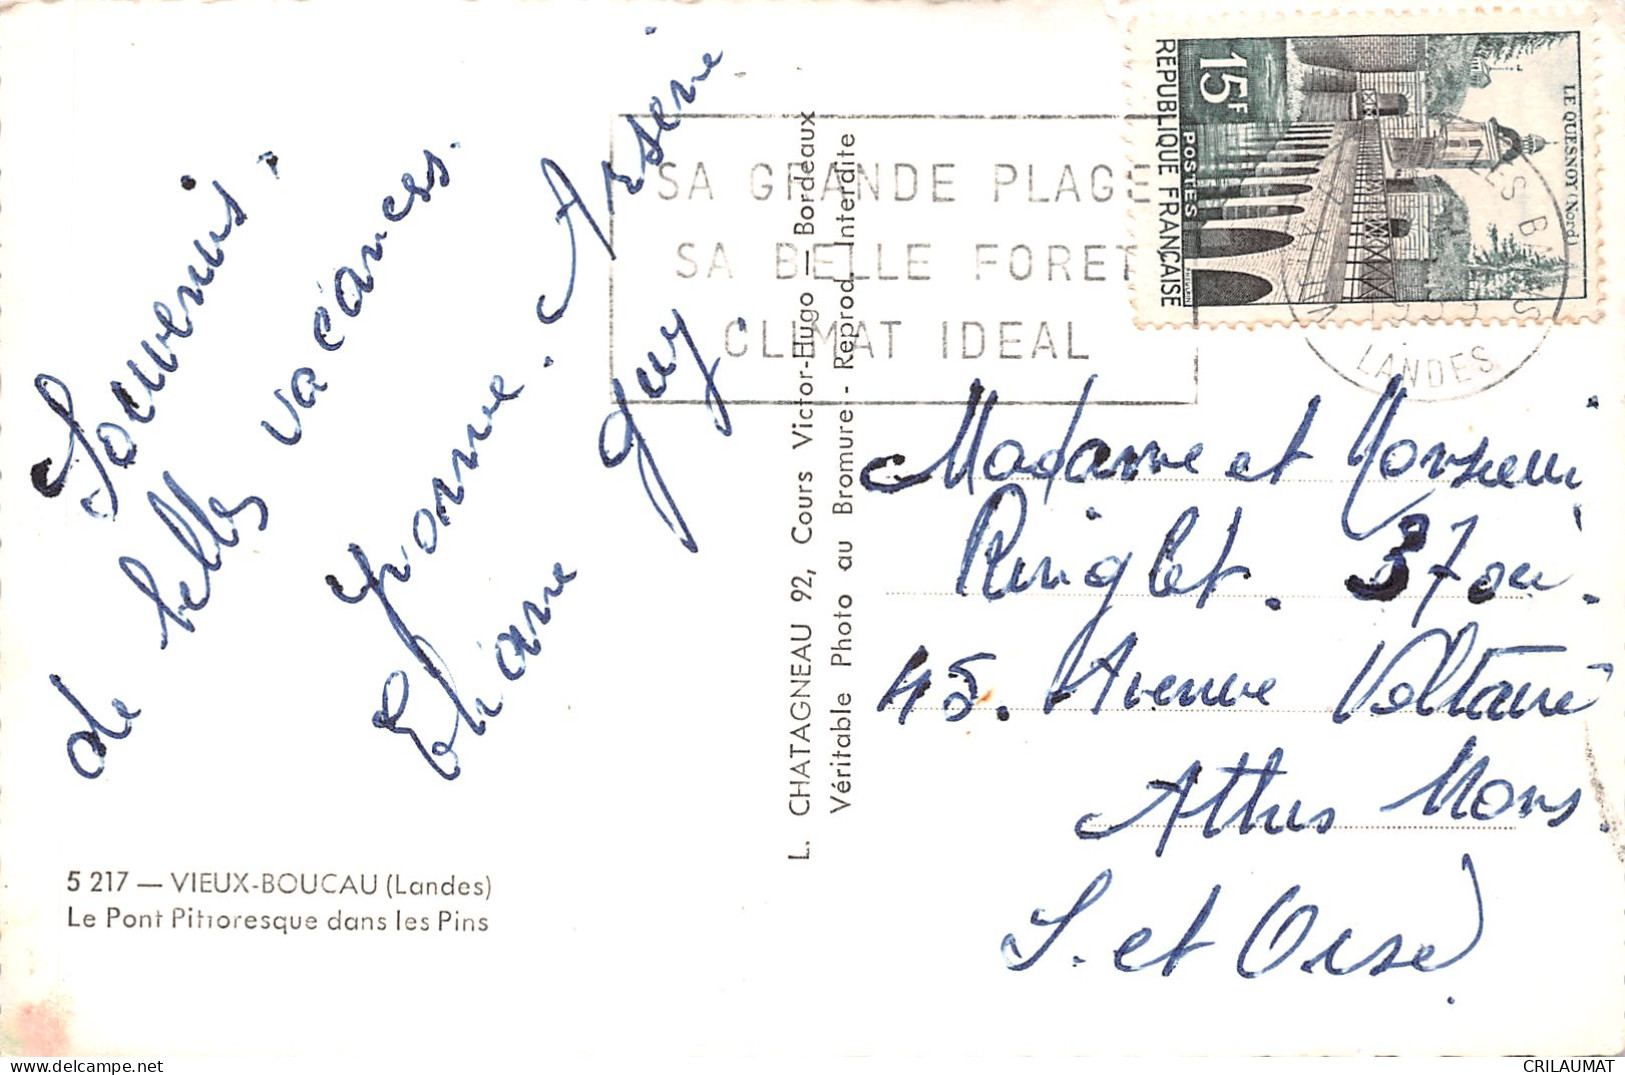 Souvenirs
de belles vacéances.
Yvonne. Arsène
Eliane Guy.
5 217 — VIEUX-BOUCAU (Landes)
Le Pont Pittoresque dans les Pins
L. CHATAGNEAU 92, Cours Victor-Hugo — Bordeaux
Véritable Photo au Bromure - Reprod. Interdite
SA GRANDE PLAGE
SA BELLE FORET
CLIMAT IDEAL
LES BAINS
LANDES
15F
POSTES
REPUBLIQUE FRANÇAISE
LE QUESNOY (Nord)
Madame et Monsieur
Ringlet. 37
45. Avenue Voltaire
Athis Mons.
S. et Oise
www.delcampe.net
CRILAUMAT